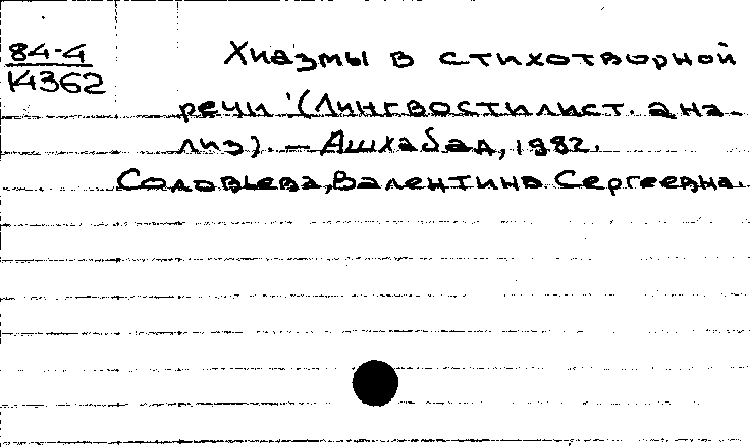 84-4
14362
Хиазмы в стихотворной
речи (Лингвостилист. ана-
лиз). – Ашхабад, 1982.
Соловьева, Валентина Сергеевна.